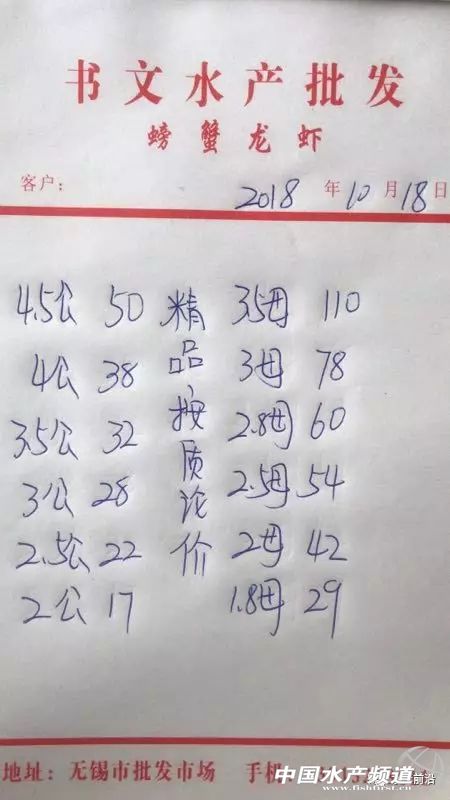 书文水产批发
螃蟹龙虾
客户: 2018 年 10 月 18 日
4.5公 50 3.5母 110
4公 38 3母 78
3.5公 32 2.8母 60
3公 28 2.5母 54
2.5公 22 2母 42
2公 17 1.8母 29
精品,按质论价
地址: 无锡市批发市场 手机
中国水产频道
www.fishfirst.cn
前沿